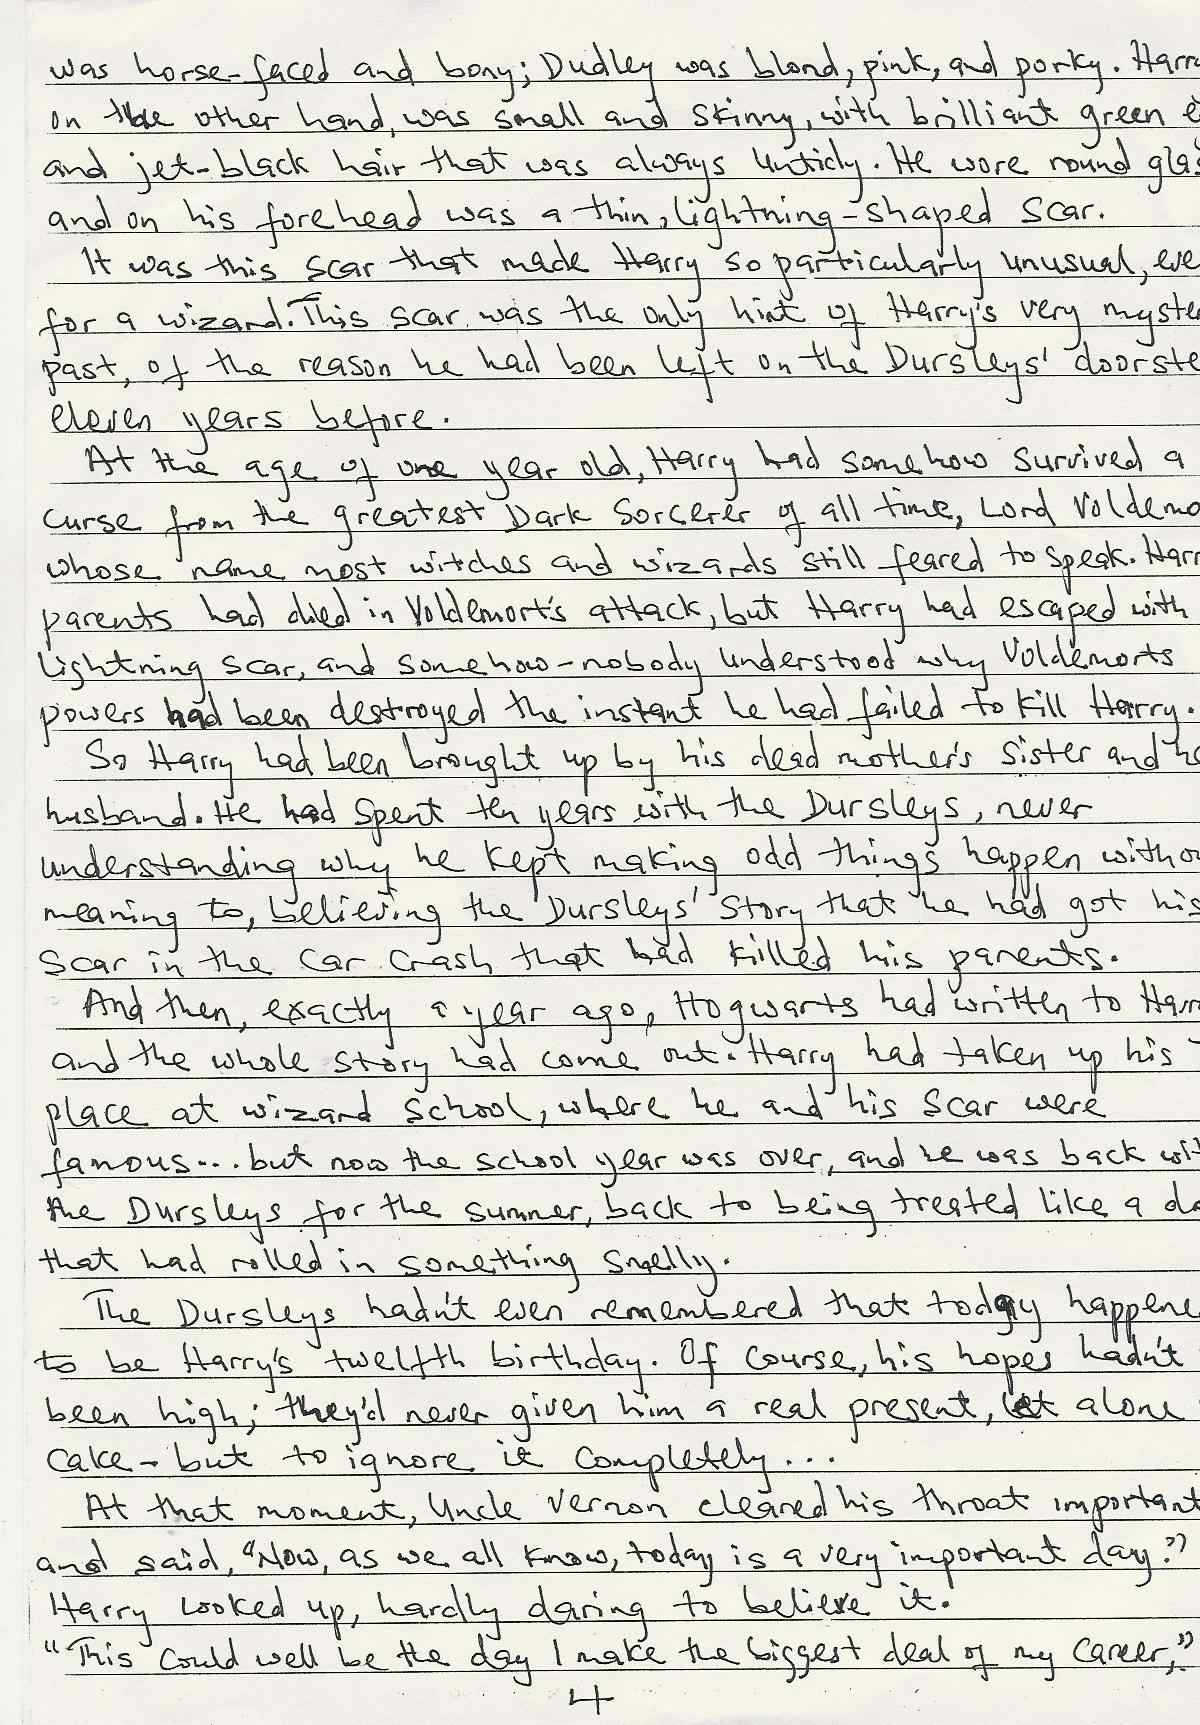 was horse-faced and bony; Dudley was blond, pink, and porky. Harry
on the other hand, was small and skinny, with brilliant green e
and jet-black hair that was always untidy. He wore round glas
and on his forehead was a thin, lightning-shaped scar.
It was this scar that made Harry so particularly unusual, eve
for a wizard. This scar was the only hint of Harry's very myste
past, of the reason he had been left on the Dursleys' doorste
eleven years before.
At the age of one year old, Harry had somehow survived a
curse from the greatest Dark Sorcerer of all time, Lord Voldemo
whose name most witches and wizards still feared to speak. Harr
parents had died in Voldemort's attack, but Harry had escaped with
lightning scar, and somehow-nobody understood why Voldemorts
powers had been destroyed the instant he had failed to kill Harry.
So Harry had been brought up by his dead mother's sister and he
husband. He had spent ten years with the Dursleys, never
understanding why he kept making odd things happen witho
meaning to, believing the Dursleys' story that he had got his
scar in the car crash that had killed his parents.
And then, exactly a year ago, Hogwarts had written to Harr
and the whole story had come out. Harry had taken up his
place at wizard school, where he and his scar were
famous... but now the school year was over, and he was back wit
the Dursleys for the summer, back to being treated like a do
that had rolled in something smelly.
The Dursleys hadn't even remembered that today happene
to be Harry's twelfth birthday. Of course, his hopes hadn't
been high; they'd never given him a real present, let alone
cake - but to ignore it completely...
At that moment, Uncle Vernon cleared his throat important
and said, "Now, as we all know, today is a very important day."
Harry looked up, hardly daring to believe it.
"This could well be the day I make the biggest deal of my career,"
4